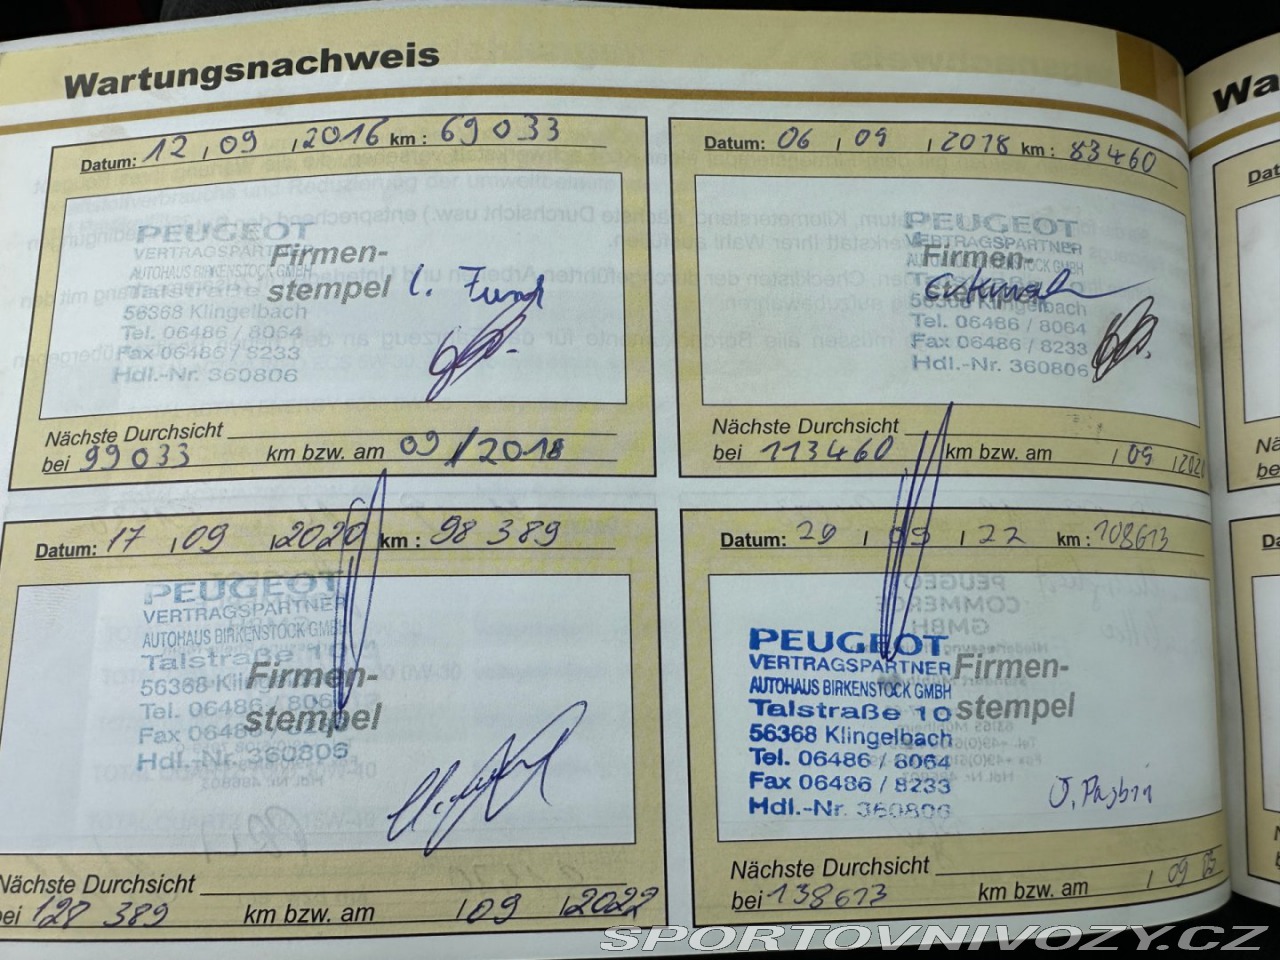 Wartungsnachweis
Wa
Datum: 12 / 09 / 2016 km: 69 033
PEUGEOT
VERTRAGSPARTNER
AUTOHAUS BIRKENSTOCK GMBH
Talstraße
56368 Klingelbach
Tel. 06486 / 8064
Fax 06486 / 8233
Hdl.-Nr. 360806
Firmen-
stempel
Nächste Durchsicht
bei 99 033 km bzw. am 09 / 2018
Datum: 06 / 09 / 2018 km: 83460
PEUGEOT
VERTRAGSPARTNER
56368 Klingelbach
Tel. 06486 / 8064
Fax 06486 / 8233
Hdl.-Nr. 360806
Firmen-
stempel
Nächste Durchsicht
bei 113460 km bzw. am / 09 / 202
Datum: 17 / 09 / 2020 km: 98 389
PEUGEOT
VERTRAGSPARTNER
AUTOHAUS BIRKENSTOCK GMBH
Talstraße 10
56368 Klingelbach
Tel. 06486 / 8064
Fax 06486 / 8233
Hdl.-Nr. 360806
Firmen-
stempel
Nächste Durchsicht
bei 128 389 km bzw. am / 09 / 2022
Datum: 29 / 09 / 22 km: 108613
PEUGEOT
VERTRAGSPARTNER
AUTOHAUS BIRKENSTOCK GMBH
Talstraße 10
56368 Klingelbach
Tel. 06486 / 8064
Fax 06486 / 8233
Hdl.-Nr. 360806
Firmen-
stempel
Nächste Durchsicht
bei 138613 km bzw. am / 09
SPORTOVNIVOZY.CZ